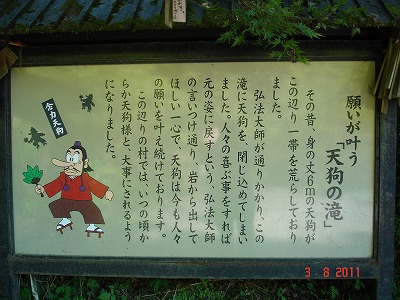 願いが叶う
「天狗の滝」
その昔、身の丈6mの天狗が
この辺り一帯を荒らしており
ました。
弘法大師が通りかかり、この
滝に天狗を閉じ込めてしまい
ました。人々の喜ぶ事をすれば
元の姿に戻すという、弘法大師
の言いつけ通り、岩から出して
ほしい一心で、天狗は今も人々
の願いを叶え続けております。
この辺りの村では、いつの頃か
らか天狗様と、大事にされるよう
になりました。
合力天狗
3 8 2011